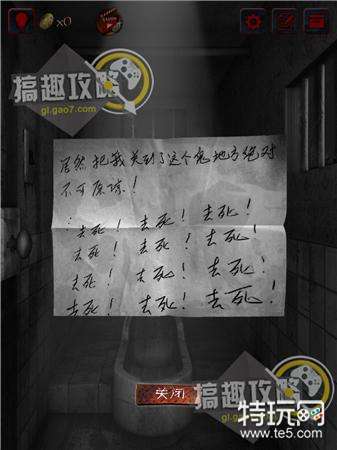 x0
搞趣攻略
gl.gao7.com
居然把我关到了这个鬼地方绝对
不可原谅!
去死! 去死! 去死!
去死! 去死! 去死!
去死! 去死! 去死!
去死! 去死! 去死!
搞趣攻略
关闭
特玩网
www.te5.com